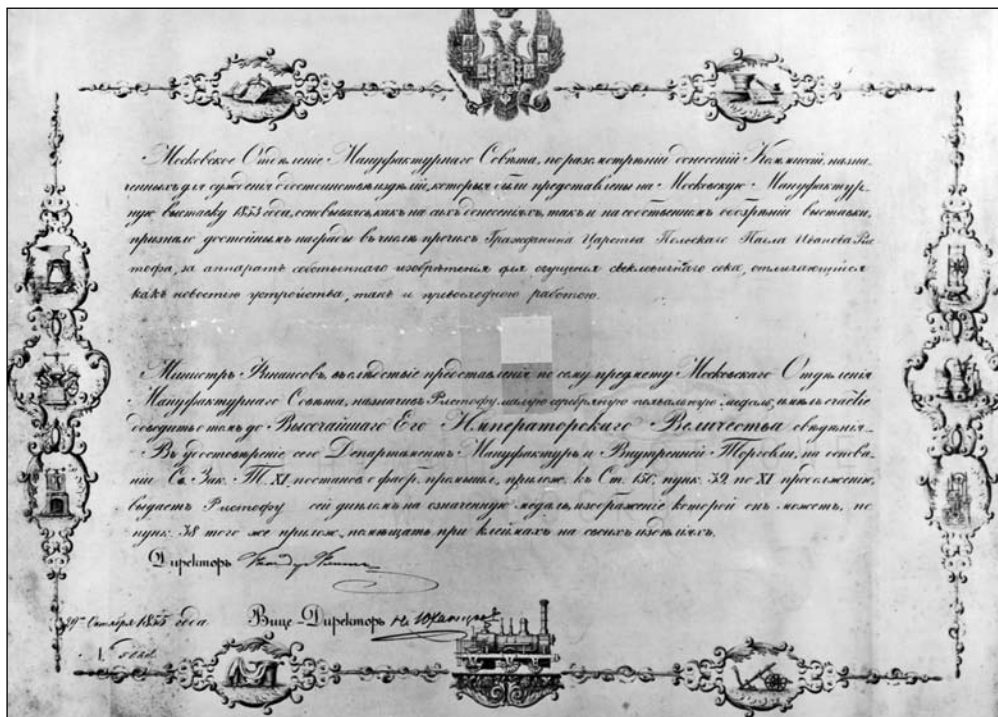 Московское Отдѣленіе Мануфактурнаго Совѣта, по разсмотрѣніи донесеній Коммисій, назна-
ченныхъ для сужденія о достоинствѣ издѣлій, которыя были представлены на Московскую Мануфактур-
ную выставку 1853 года, основываясь, какъ на сихъ донесеніяхъ, такъ и на собственномъ обозрѣніи выставки,
признало достойнымъ награды въ числѣ прочихъ Гражданина Царства Польскаго Павла Иванова Рис-
тофа, за аппаратъ собственнаго изобрѣтенія для сгущенія свекловичнаго сока, отличающійся
какъ новостію устройства, такъ и превосходною работою.
Министръ Финансовъ, въ слѣдствіе представленія по сему предмету Московскаго Отдѣленія
Мануфактурнаго Совѣта, назначивъ Ристофу малую серебряную похвальную медаль, имѣлъ счастіе
доводить о томъ до Высочайшаго Его Императорскаго Величества свѣдѣнія.
Въ удостовѣреніе сего Департаментъ Мануфактуръ и Внутренней Торговли, на основа-
ніи Св. Зак. Т. XI постанов. о фабр. промышл., прилож. къ Ст. 150, пунк. 32 по XI продолженію,
выдаетъ Ристофу сей дипломъ на означенную медаль, изображеніе которой онъ можетъ, по
пунк. 38 того же прилож., помѣщать при клеймахъ на своихъ издѣліяхъ.
Директоръ
29го 1855 года
Вице-Директоръ